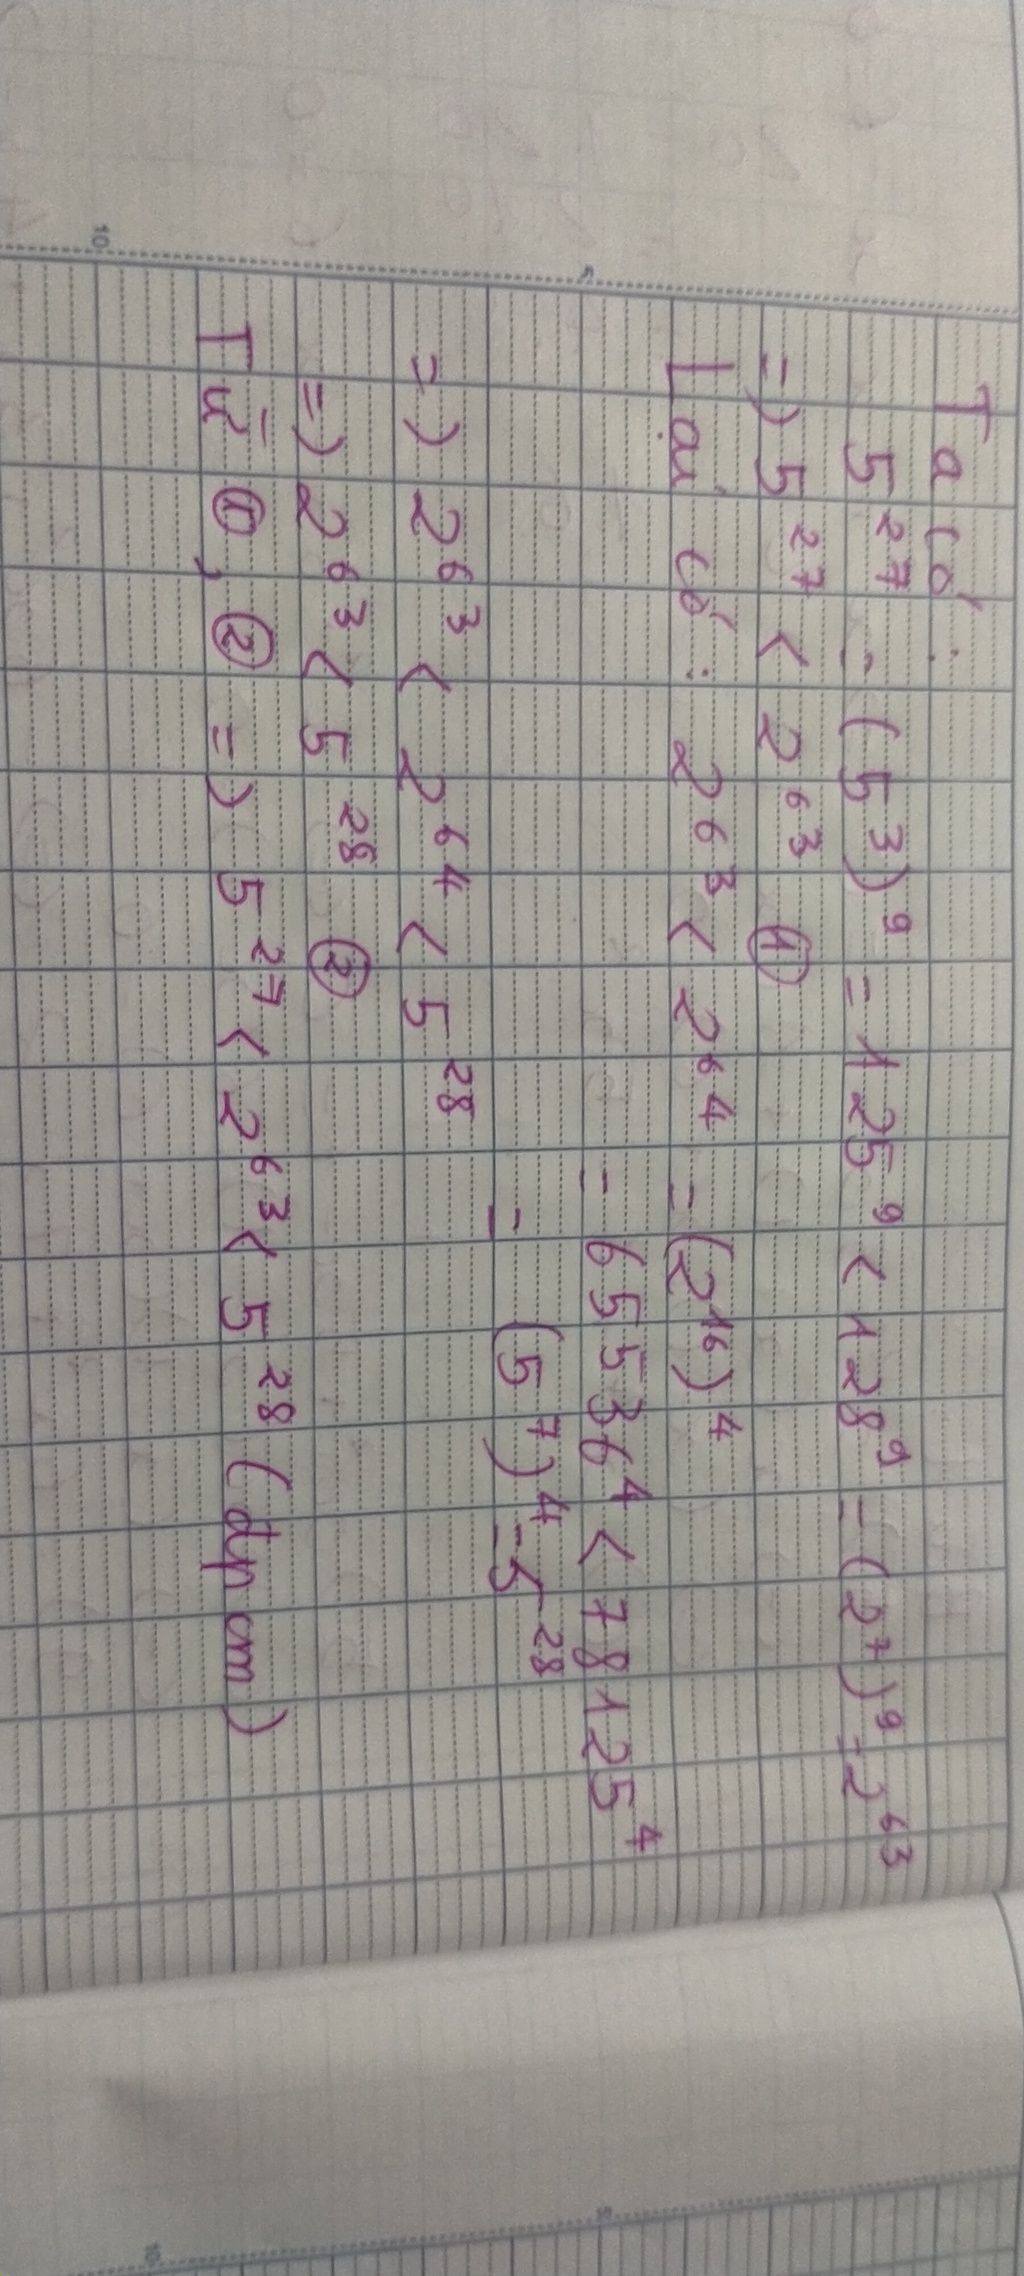 Ta có:
5²⁷ = (5³)⁹ = 125⁹ < 128⁹ = (2⁷)⁹ = 2⁶³
=) 5²⁷ < 2⁶³ ①
Lại có: 2⁶³ < 2⁶⁴ = (2¹⁶)⁴
= 65536⁴ < 78125⁴
= (5⁷)⁴ = 5²⁸
=) 2⁶³ < 2⁶⁴ < 5²⁸
=) 2⁶³ < 5²⁸ ②
Từ ①, ② =) 5²⁷ < 2⁶³ < 5²⁸ (đpcm)